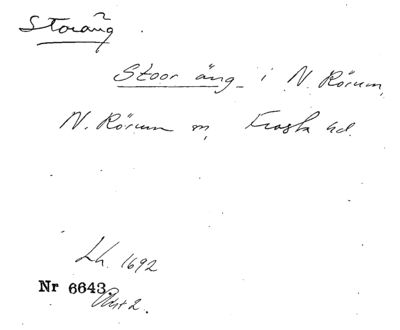 Storäng
Stoor äng i N. Rörum,
N. Rörum sn, Frosta hd.
Lh. 1692
Nr 6643.
Akt 2.